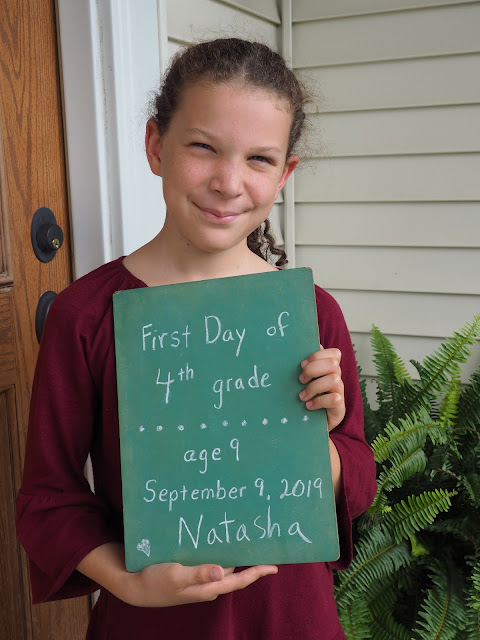 First Day of
4th grade
age 9
September 9, 2019
Natasha